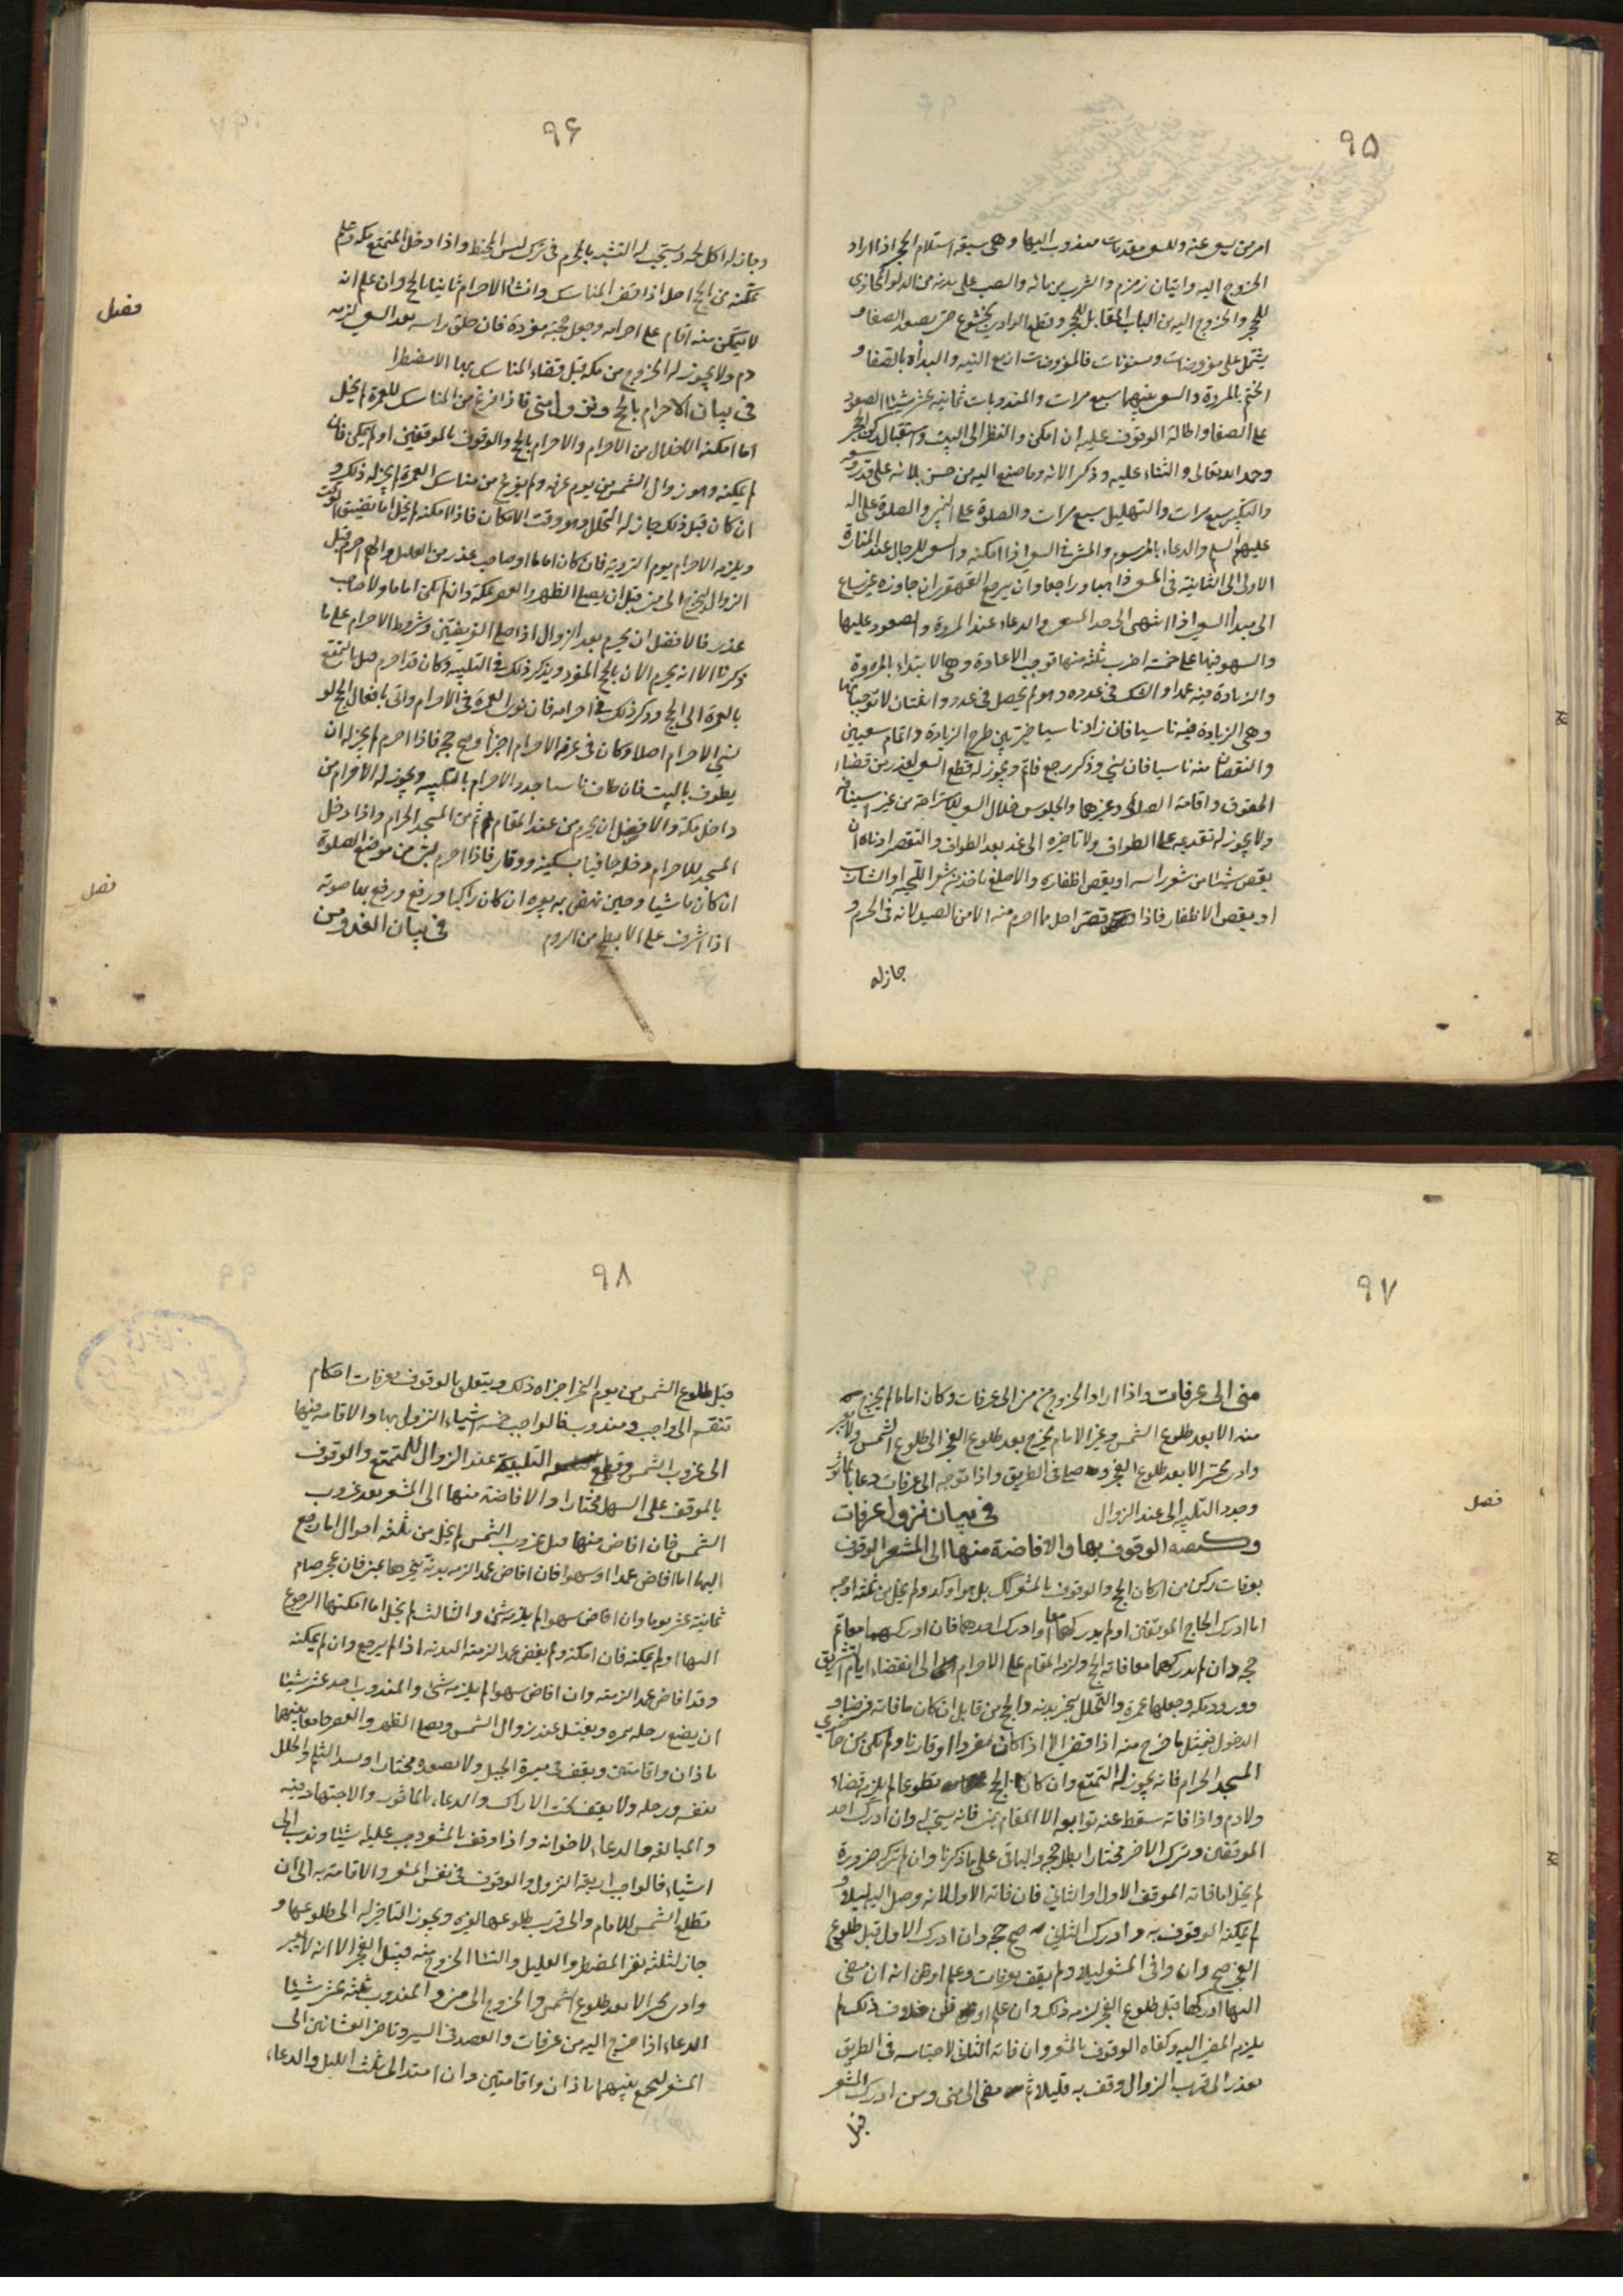 ٩٥
امر من يسعى عنه وللسعى مقدمات مندوب اليها وهى سبعة استلام الحجر اذا اراد
الخروج اليه واتيان زمزم والشرب من مائه والصب على بدنه من الدلو المحاذى
للحجر والخروج اليه من الباب المقابل للحجر وقطع الوادى بخشوع حتى يصعد الصفا و
يشتمل على مفروضات ومسنونات فالمفروضات اربع النيه والبدأة بالصفا و
الختم بالمروة والسعى بينهما سبع مرات والمندوبات ثمانيه عشر شيئا الصعود
على الصفا واطالة الوقوف عليه ان امكن والنظر الى البيت واستقبال ركن الحجر
وحمد الله تعالى والثناء عليه وذكر الائه وما صنع اليه من حسن بلائه على قدر وسعه
والتكبير سبع مرات والتهليل سبع مرات والصلوة على النبى والصلوة على اله
عليهم السلم والدعاء بالمرسوم والمشى فى السعى اذا امكنه والسعى للرجال عند المنارة
الاولى الى الثانية فى المسعى ذاهبا وراجعا وان يرجع القهقرى ان جاوزه غير ساع
الى مبدأ السعى اذا انتهى الى حد المسعى والدعاء عند المروة والصعود عليها
والسهو فيها على خمسة اضرب ثلثه منها توجب الاعادة وهى الابتداء بالمروة
والزيادة فيه عمدا والشك فى عدده وهو لم يحصل فى عدد واثنتان لا توجبانها
وهى الزيادة فيه ناسيا فان زاد ناسيا طرح الزيادة واتمام سعيين
والنقصان منه ناسيا فان نسى وذكر رجع فاتم ويجوز له قطع السعى لعذر من قضاء
الحقوق واقامة الصلوة وغيرها والجلوس خلال السعى للاستراحة من غير
ولا يجوز له تقديمه على الطواف ولا تاخيره الى غد بعد الطواف والتقصير ادناه ان
يقص شيئا من شعر راسه او يقص اظفاره والاصلع ياخذ من شعر اللحيه او الشارب
او يقص الاظفار فاذا قصر احل مما احرم منه الا من الصيد لانه فى الحرم و
جاز له
٩۶
وجاز له اكل لحمه ويستحب له التشبه بالمحرم فى ترك لبس المخيط واذا دخل المتمتع مكه وعلم
تمكنه من الحج احل اذا قضى المناسك وانشا الاحرام ثانيا بالحج وان علم انه
لا يتمكن منه اقام على احرامه وجعل حجته مفردة فان حلق راسه بعد السعى لزمه
دم ولا يجوز له الخروج من مكه قبل قضاء المناسك بها الا مضطرا
فصل
فى بيان الاحرام بالحج فاذا فرغ من المناسك للعمرة لم يخل
اما امكنه الاحلال من الاحرام والاحرام بالحج والوقوف بالموقفين او لم يمكن فان
لم يمكنه وهو زوال الشمس من يوم عرفه ولم يفرغ من مناسك العمرة لم يجز له ذلك و
ان كان قبل ذلك جاز له التحلل وهو وقت الامكان فاذا امكنه لم يخل اما تضيق الوقت
ويلزمه الاحرام يوم الترويه فان كان اماما او صاحب عذر من العليل والهم احرم قبل
الزوال ليخرج الى منى قبل ان يصلى الظهر والعصر بمكة وان لم يكن اماما ولا صاحب
عذر فالافضل ان يحرم بعد الزوال اذا صلى الفريضتين وشروط الاحرام على ما
ذكرنا الا انه يحرم الان بالحج المفرد ويذكر ذلك فى التلبيه وكان قد احرم قبل بالتمتع
بالعمرة الى الحج وذكر ذلك فى احرامه فان نوى العمرة فى الاحرام واتى بافعال الحج او
نسى الاحرام اصلا وكان فى عزمه الاحرام اجزأ وصح حجه فاذا احرم لم يجز له ان
يطوف بالبيت فان طاف ناسيا جدد الاحرام بالتلبيه ويجوز له الاحرام من
داخل مكة والافضل ان يحرم من عند المقام ثم من المسجد الحرام واذا دخل
المسجد للاحرام دخله حافيا بسكينه ووقار فاذا احرم لبى من موضع الصلوة
ان كان ماشيا وحين نهض به بعيره ان كان راكبا ورفع بها صوته
اذا اشرف على الابطح من الروم
فصل
فى بيان الغدو من
٩٧
منى الى عرفات واذا اراد الخروج من منى الى عرفات وكان اماما لم يخرج
منه الا بعد طلوع الشمس وغير الامام يخرج بعد طلوع الفجر الى طلوع الشمس ولا يعبر
وادى محسر الا بعد طلوع الفجر وصلى فى الطريق واذا توجه الى عرفات دعا بالماثور
وجدد التلبيه الى عند الزوال
فصل
فى بيان نزول عرفات
وكيفيه الوقوف بها والافاضة منها الى المشعر الوقوف
بعرفات ركن من اركان الحج والوقوف بالمشعر كذلك بل هو اوكد ولم يخل من ثلثه اوجه
اما ادرك الحاج الموقفين او لم يدركهما معا او ادرك احدهما فان ادركهما معا تم
حجه وان لم يدركهما معا فاته الحج ولزمه المقام على الاحرام الى انقضاء ايام التشريق
وورود مكه وجعلها عمرة والتحلل بنحر بدنه والحج من قابل ان كان ما فاته فرضا و
الدخول فيمثل ما خرج منه اذا قضى الا اذا كان مفردا او قارنا ولم يكن من حاضرى
المسجد الحرام فانه يجوز له التمتع وان كان الحج تطوعا لم يلزم قضاء
ولا دم واذا فاته سقط عنه توابعه الا المقام بمنى فانه يستحب له وان ادرك احد
الموقفين وترك الاخر مختارا بطل حجه والباقى على ما ذكرنا وان لم يترك ضرورة
لم يخل اما فاته الموقف الاول او الثانى فان فاته الاول لانه وصل اليه ليلا و
لم يمكنه الوقوف به وادرك الثانى صح حجه وان ادرك الاول قبل طلوع
الفجر صح وان وافى المشعر ليلا ولم يقف بعرفات وعلم او ظن انه ان مضى
اليها ادركها قبل طلوع الفجر لزمه ذلك وان علم او ظن خلاف ذلك لم
يلزم المضى اليه وكفاه الوقوف بالمشعر وان فاته الثانى لاحتباسه فى الطريق
بعذر الى قرب الزوال وقف به قليلا ثم مضى الى منى ومن ادرك المشعر
قبل
٩٨
قبل طلوع الشمس من يوم النحر اجزاه ذلك ويتعلق بالوقوف بعرفات احكام
تنقسم الى واجب ومندوب فالواجب خمسه اشياء النزول بها والاقامه فيها
الى غروب الشمس وقطع التلبية عند الزوال للمتمتع والوقوف
بالموقف على السهل مختارا والافاضة منها الى المشعر بعد غروب
الشمس فان افاض منها قبل غروب الشمس لم يخل من ثلثه احوال اما رجع
اليها اما افاض عمدا او سهوا فان افاض عمدا لزمه بدنة ينحرها بمنى فان عجز صام
ثمانية عشر يوما وان افاض سهوا لم يلزمه شئ والثالث لم يخل اما امكنها الرجوع
اليها او لم يمكنه فان امكنه ولم يفض عمدا لزمته البدنه اذا لم يرجع وان لم يمكنه
وقد افاض عمدا لزمته وان افاض سهوا لم يلزمه شئ والمندوب احد عشر شيئا
ان يضع رحله بنمره ويغتسل عند زوال الشمس ويصلى الظهر والعصر جامعا بينهما
باذان واقامتين ويقف فى ميسرة الجبل ولا يصعده مختارا ويسد الثلم والخلل
بنفسه ورحله ولا يقف تحت الاراك والدعاء بالماثور والاجتهاد فيه
والمبالغه والدعاء لاخوانه واذا وقف بالمشعر وجب عليه شيئا وندب الى
اشياء فالواجب اربعه النزول والوقوف فى نفس المشعر والاقامة به الى ان
تطلع الشمس للامام والى قرب طلوعها لغيره ويجوز التاخير له الى طلوعها و
جاز لثلثه نفر المضطر والعليل والنسا الخروج منه قبل الفجر الا انه لا يعبر
وادى محسر الا بعد طلوع الشمس والخروج الى منى والمندوب ثلثة عشر شيئا
الدعاء اذا خرج اليه من عرفات والقصد فى السير وتاخر العشائين الى
المشعر ليجمع بينهما باذان واقامتين وان امتد الى ثلث الليل والدعاء